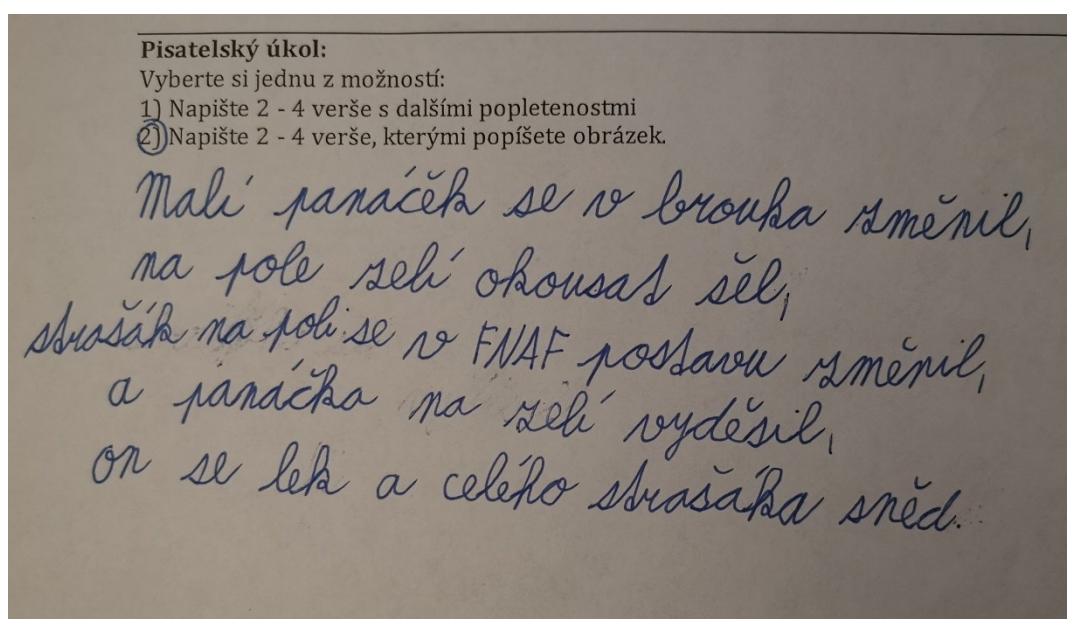 Pisatelský úkol:
Vyberte si jednu z možností:
1) Napište 2 - 4 verše s dalšími popletenostmi
2) Napište 2 - 4 verše, kterými popíšete obrázek.
Malí panáčěk se v brouka změnil,
na pole zelí okousat šel,
strašák na poli se v FNAF postavu změnil,
a panáčka na zelí vyděsil,
on se lek a celého strašáka sněd.